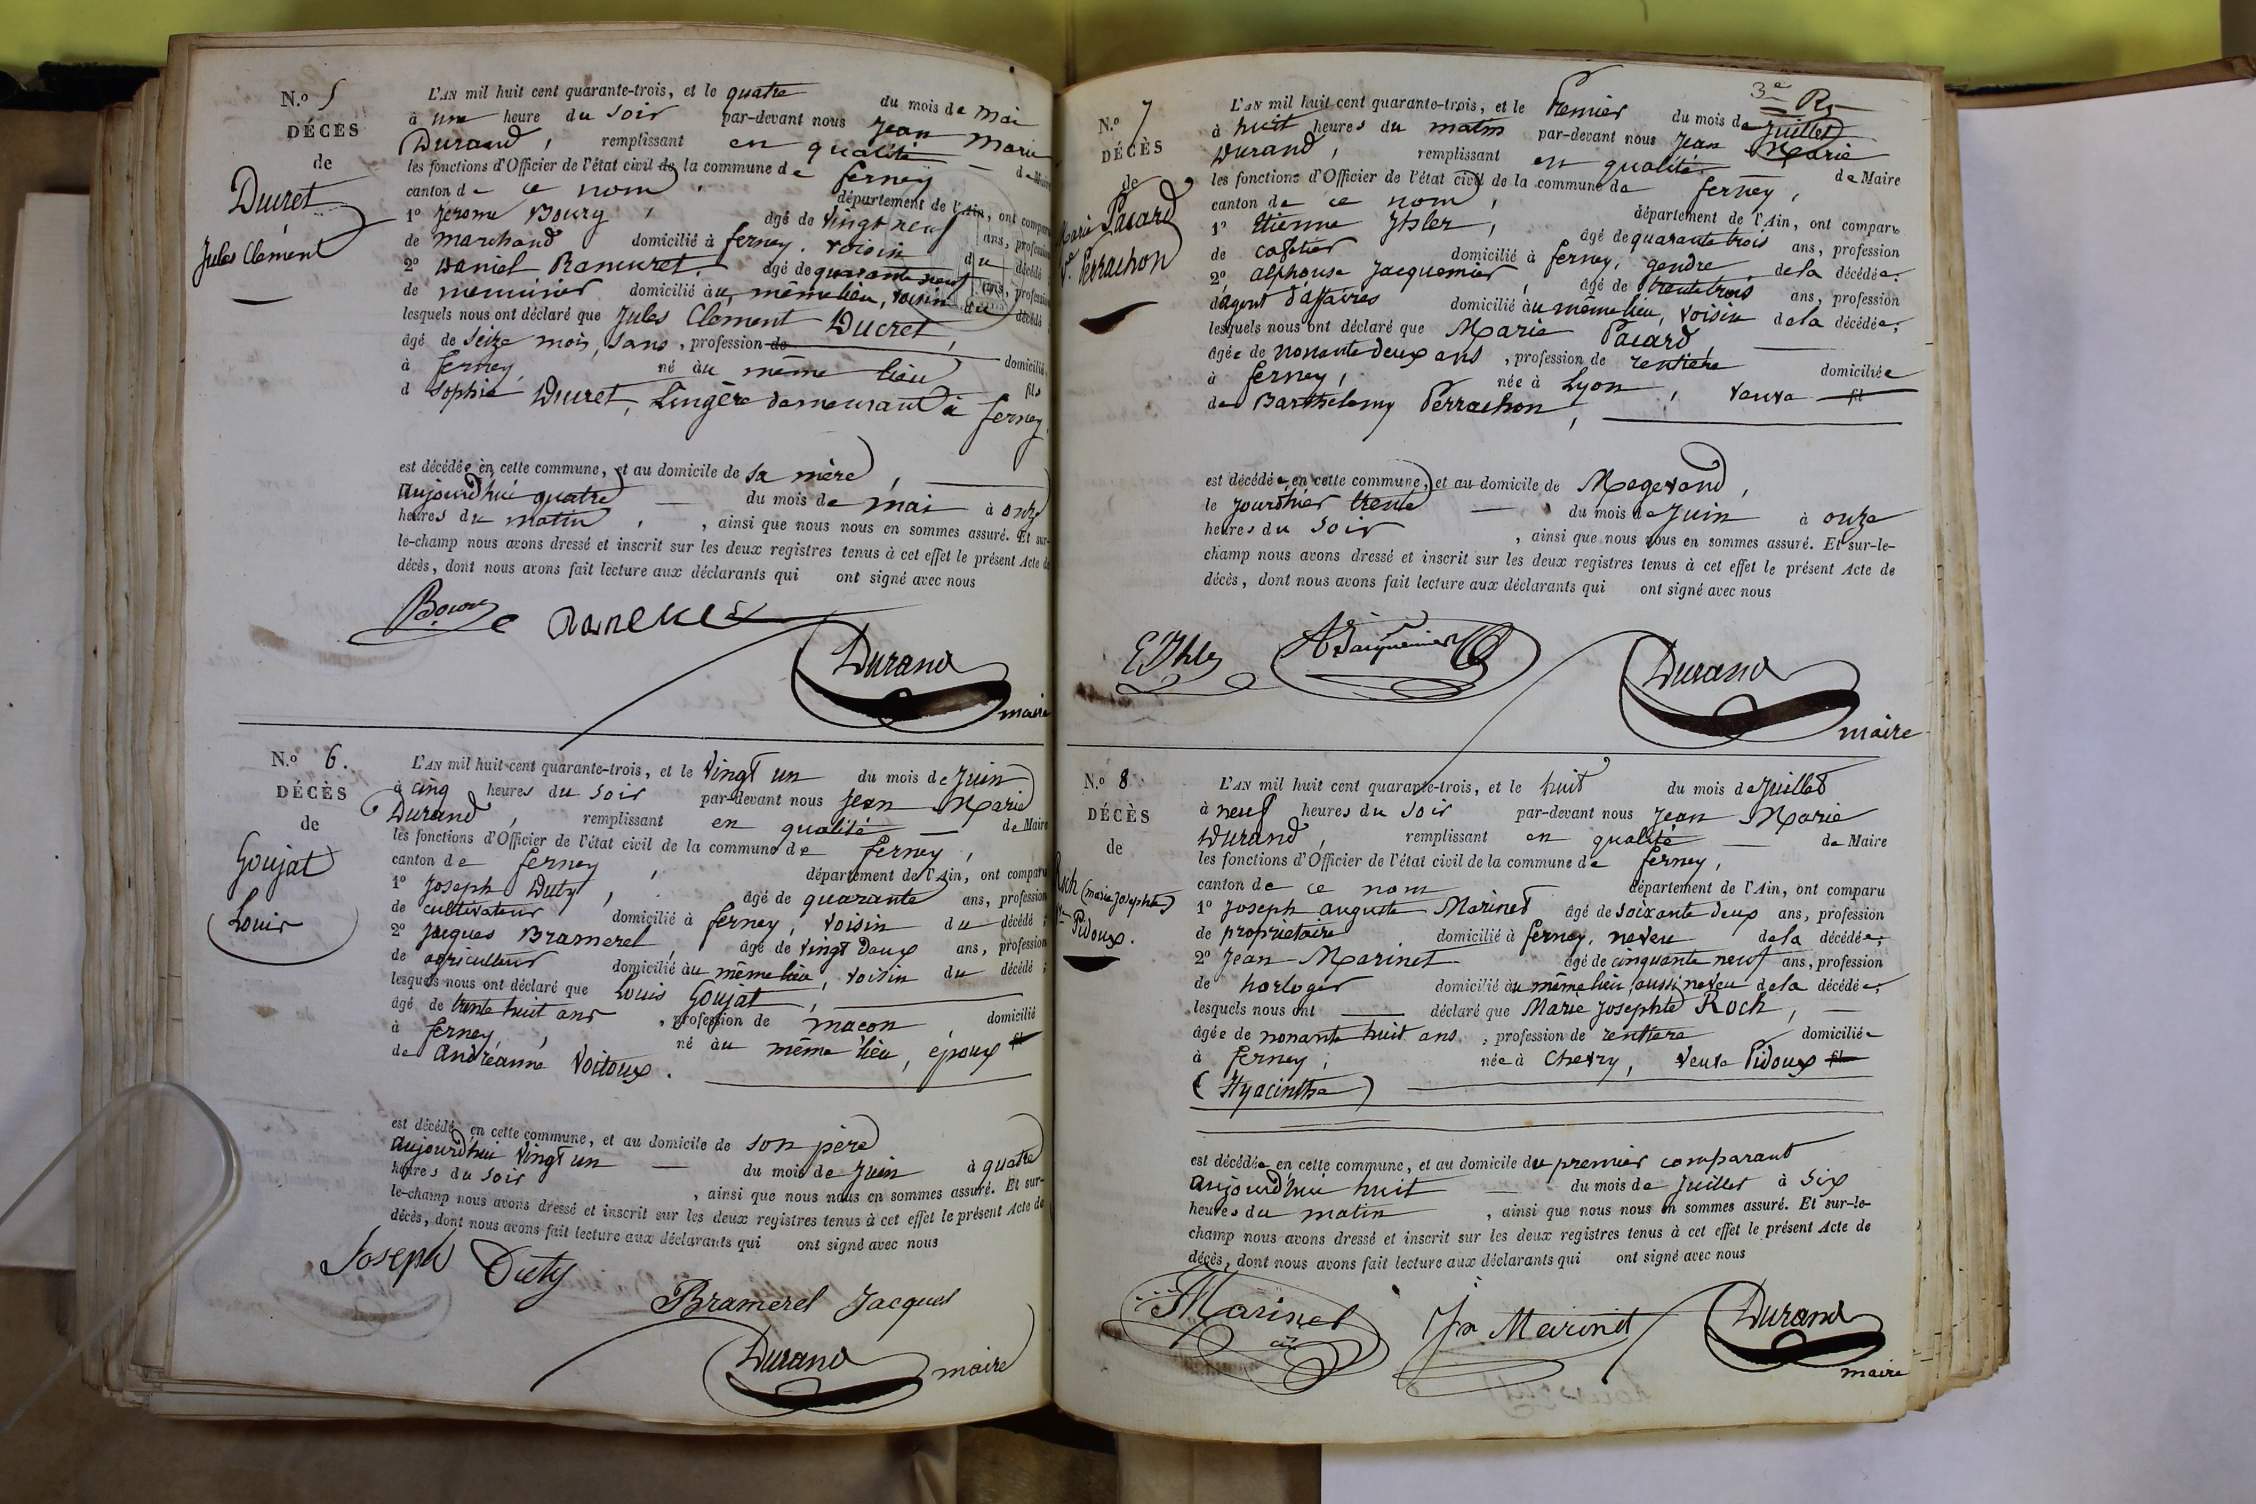 N.o 5
DÉCÈS
de
Ducret
Jules Clément
L'AN mil huit cent quarante-trois, et le quatre du mois de mai
à une heure du soir par-devant nous Jean Marie
Durand, remplissant en qualité de Maire
les fonctions d'Officier de l'état civil de la commune de ferney
canton de ce nom, département de l'Ain, ont comparu
1o Jerome Bourg, âgé de vingt neuf ans, profession
de marchand domicilié à ferney, voisin du décédé
2o Daniel Ramuret, âgé de quarante neuf ans, profession
de menuisier domicilié au même lieu, voisin du décédé
lesquels nous ont déclaré que Jules Clément Ducret,
âgé de seize mois, sans, profession de domicilié
à ferney, né au même lieu fils
d Sophie Ducret, Lingère demeurant à ferney.
est décédé en cette commune, et au domicile de sa mère,
aujourd'hui quatre du mois de mai à onze
heures du matin, ainsi que nous nous en sommes assuré. Et sur-
le-champ nous avons dressé et inscrit sur les deux registres tenus à cet effet le présent Acte de
décès, dont nous avons fait lecture aux déclarants qui ont signé avec nous
Durand
maire
N.o 6.
DÉCÈS
de
Goujat
Louis
L'AN mil huit cent quarante-trois, et le vingt un du mois de Juin
à cinq heures du soir par-devant nous Jean Marie
Durand, remplissant en qualité de Maire
les fonctions d'Officier de l'état civil de la commune de ferney,
canton de ferney, département de l'Ain, ont comparu
1o Joseph Duty, âgé de quarante ans, profession
de cultivateur domicilié à ferney, voisin du décédé;
2o Jacques Bramerel, âgé de vingt deux ans, profession
de agriculteur domicilié au même lieu, voisin du décédé;
lesquels nous ont déclaré que Louis Goujat,
âgé de trente huit ans, profession de maçon, domicilié
à ferney, né au même lieu, époux fil
de andréanne Voitoux.
est décédé en cette commune, et au domicile de son père
aujourd'hui vingt un du mois de Juin à quatre
heures du soir, ainsi que nous nous en sommes assuré. Et sur-
le-champ nous avons dressé et inscrit sur les deux registres tenus à cet effet le présent Acte de
décès, dont nous avons fait lecture aux déclarants qui ont signé avec nous
Joseph Duty
Bramerel Jacques
Durand maire
3e Rs
N.o 7
DÉCÈS
de
Marie Pacard
Ve Perrachon
L'AN mil huit cent quarante-trois, et le Premier du mois de Juillet
à huit heures du matin par-devant nous Jean Marie
Durand, remplissant en qualité de Maire
les fonctions d'Officier de l'état civil de la commune de ferney,
canton de ce nom, département de l'Ain, ont comparu
1o Etienne Ihler, âgé de quarante trois ans, profession
de cafetier domicilié à ferney, gendre de la décédée.
2o alphonse Jacquemier, âgé de trente trois ans, profession
d'agent d'affaires domicilié au même lieu, voisin de la décédée;
lesquels nous ont déclaré que Marie Pacard,
âgée de nonante deux ans, profession de rentière domiciliée
à ferney, née à Lyon, veuve fil
de Barthelemy Perrachon,
est décédée en cette commune, et au domicile de Megevand,
le jourd'hier trente du mois de Juin à onze
heures du soir, ainsi que nous nous en sommes assuré. Et sur-le-
champ nous avons dressé et inscrit sur les deux registres tenus à cet effet le présent Acte de
décès, dont nous avons fait lecture aux déclarants qui ont signé avec nous
E Ihler A Jacquemier
Durand
maire
N.o 8
DÉCÈS
de
Roch (marie Josephte)
Ve Pidoux.
L'AN mil huit cent quarante-trois, et le huit du mois de Juillet
à neuf heures du soir par-devant nous Jean Marie
Durand, remplissant en qualité de Maire
les fonctions d'Officier de l'état civil de la commune de ferney,
canton de ce nom département de l'Ain, ont comparu
1o Joseph auguste Marinet âgé de soixante deux ans, profession
de propriétaire domicilié à ferney, neveu de la décédée;
2o Jean Marinet âgé de cinquante neuf ans, profession
de horloger domicilié au même lieu, aussi neveu de la décédée;
lesquels nous ont déclaré que Marie Josephte Roch,
âgée de nonante huit ans, profession de rentière domiciliée
à ferney, née à Chevry, veuve Pidoux fil
(Hyacinthe)
est décédée en cette commune, et au domicile du premier comparant
aujourd'hui huit du mois de Juillet à six
heures du matin, ainsi que nous nous en sommes assuré. Et sur-le-
champ nous avons dressé et inscrit sur les deux registres tenus à cet effet le présent Acte de
décès, dont nous avons fait lecture aux déclarants qui ont signé avec nous
Marinet Jn Marinet Durand
maire